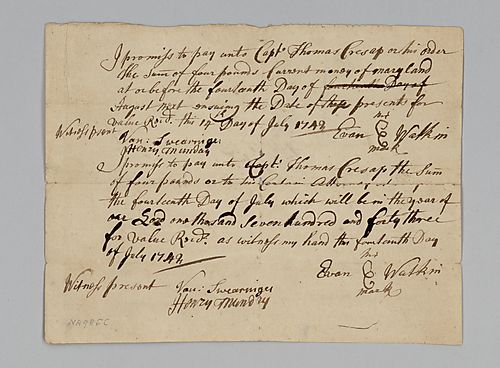 I promiss to pay unto Capt. Thomas Cresap or his order
the Sum of four pounds Current money of maryland
at or before the fourteenth Day of fourteenth Day of
August next ensuing the Date of these presents for
value Recd. this 14th Day of July 1742
his
Witness present Evan Watkin
mark
Van: Swearingen
Henry Munday
I promiss to pay unto Capt. Thomas Cresap the Sum
of four pounds or to his Certain Attorney at
the fourteenth Day of July which will be in the year of
our Lord one thousand Seven hundred and forty three
for Value Recd. as witness my hand this fourteenth Day
of July 1742
his
Evan Watkin
mark
Witness present Van: Swearingen
Henry Munday